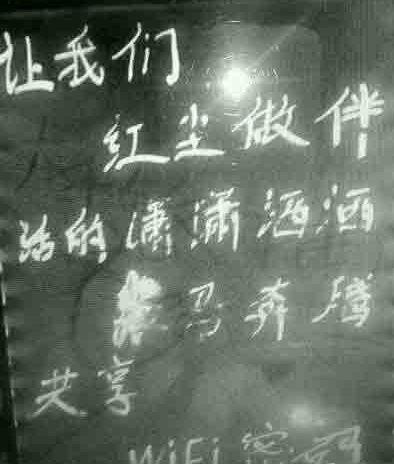 让我们
红尘做伴
活的潇潇洒洒
策马奔腾
共享
WiFi 密码